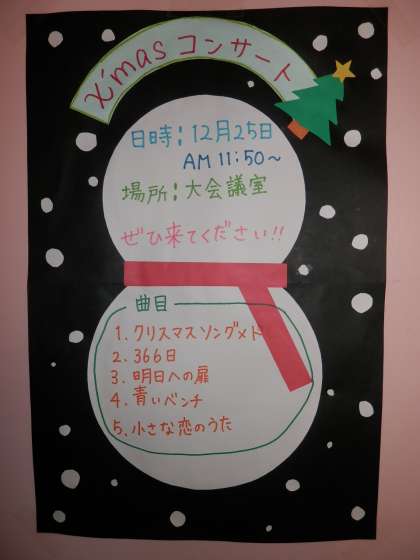 X'mas コンサート
日時：12月25日
AM 11:50～
場所：大会議室
ぜひ来てください!!
曲目
1. クリスマスソングメド
2. 366日
3. 明日への扉
4. 青いベンチ
5. 小さな恋のうた